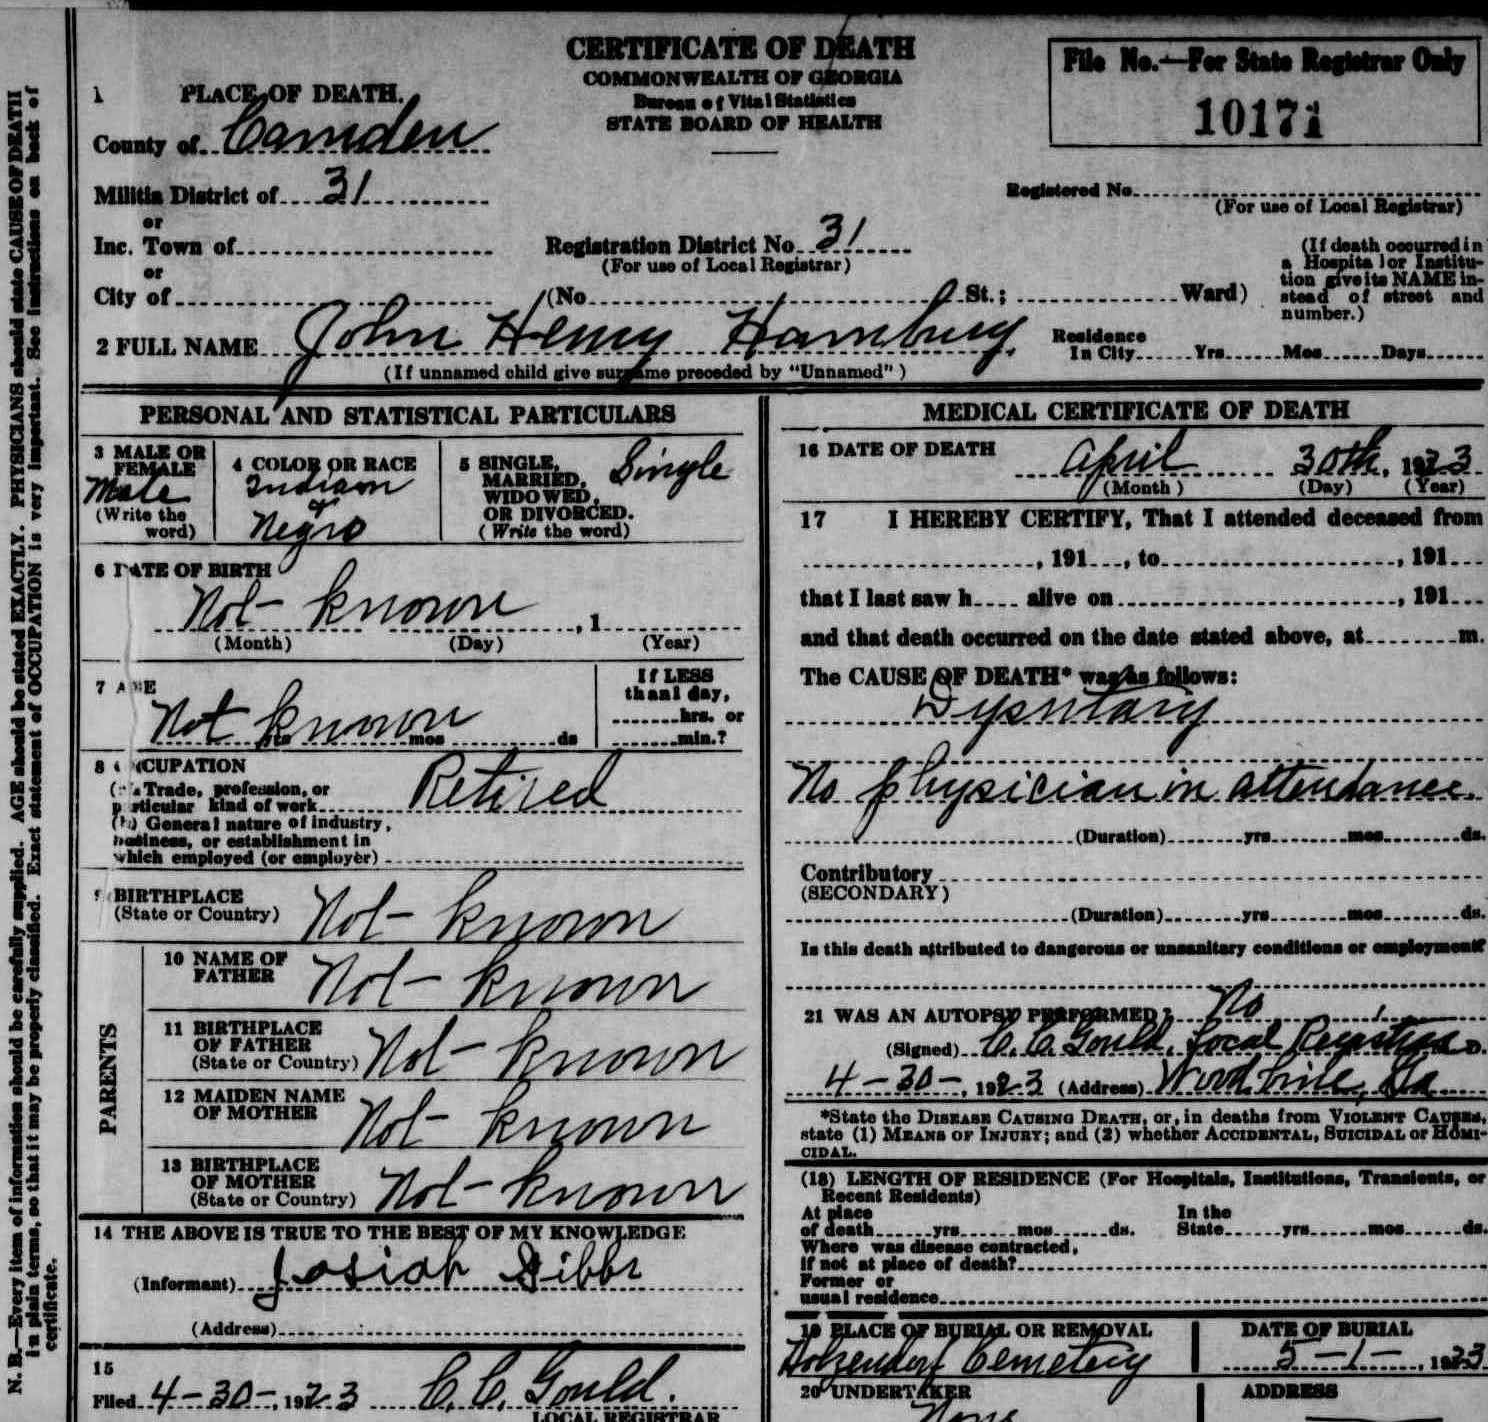 CERTIFICATE OF DEATH
COMMONWEALTH OF GEORGIA
Bureau of Vital Statistics
STATE BOARD OF HEALTH
File No.—For State Registrar Only
10171
1 PLACE OF DEATH.
County of Camden
Militia District of 31
or
Inc. Town of
or
City of
Registered No
(For use of Local Registrar)
Registration District No 31
(For use of Local Registrar)
(No St.; Ward)
(If death occurred in
a Hospital or Institu-
tion give its NAME in-
stead of street and
number.)
2 FULL NAME John Henry Hamburg
(If unnamed child give surname preceded by "Unnamed")
Residence
In City Yrs Mos Days
PERSONAL AND STATISTICAL PARTICULARS
3 MALE OR
FEMALE
Male
(Write the
word)
4 COLOR OR RACE
Indian
&
Negro
5 SINGLE,
MARRIED,
WIDOWED,
OR DIVORCED.
(Write the word)
Single
6 DATE OF BIRTH
Not known
, 1
(Month) (Day) (Year)
7 AGE
Not known
mos ds
If LESS
than 1 day,
hrs. or
min.?
8 OCCUPATION
(a) Trade, profession, or
particular kind of work Retired
(b) General nature of industry,
business, or establishment in
which employed (or employer)
9 BIRTHPLACE
(State or Country) Not known
PARENTS
10 NAME OF
FATHER Not known
11 BIRTHPLACE
OF FATHER
(State or Country) Not known
12 MAIDEN NAME
OF MOTHER Not known
13 BIRTHPLACE
OF MOTHER
(State or Country) Not known
14 THE ABOVE IS TRUE TO THE BEST OF MY KNOWLEDGE
(Informant) Josiah Gibbs
(Address)
15
Filed 4-30-, 1923 C. C. Gould.
LOCAL REGISTRAR
MEDICAL CERTIFICATE OF DEATH
16 DATE OF DEATH
April 30th, 1923
(Month) (Day) (Year)
17 I HEREBY CERTIFY, That I attended deceased from
, 191 , to , 191
that I last saw h alive on , 191
and that death occurred on the date stated above, at m.
The CAUSE OF DEATH* was as follows:
Dysntary
No physician in attendance.
(Duration) yrs mos ds.
Contributory
(SECONDARY)
(Duration) yrs mos ds.
Is this death attributed to dangerous or unsanitary conditions or employment?
21 WAS AN AUTOPSY PERFORMED? No
(Signed) C. C. Gould, Local Registrar
4-30-, 1923 (Address) Woodbine, Ga
*State the DISEASE CAUSING DEATH, or, in deaths from VIOLENT CAUSES,
state (1) MEANS OF INJURY; and (2) whether ACCIDENTAL, SUICIDAL or HOMI-
CIDAL.
(18) LENGTH OF RESIDENCE (For Hospitals, Institutions, Transients, or
Recent Residents)
At place In the
of death yrs mos ds. State yrs mos ds.
Where was disease contracted,
if not at place of death?
Former or
usual residence
19 PLACE OF BURIAL OR REMOVAL
Holzendorf Cemetery
DATE OF BURIAL
5-1-, 1923
20 UNDERTAKER
None
ADDRESS
N. B.—Every item of information should be carefully supplied. AGE should be stated EXACTLY. PHYSICIANS should state CAUSE OF DEATH
in plain terms, so that it may be properly classified. Exact statement of OCCUPATION is very important. See instructions on back of
certificate.